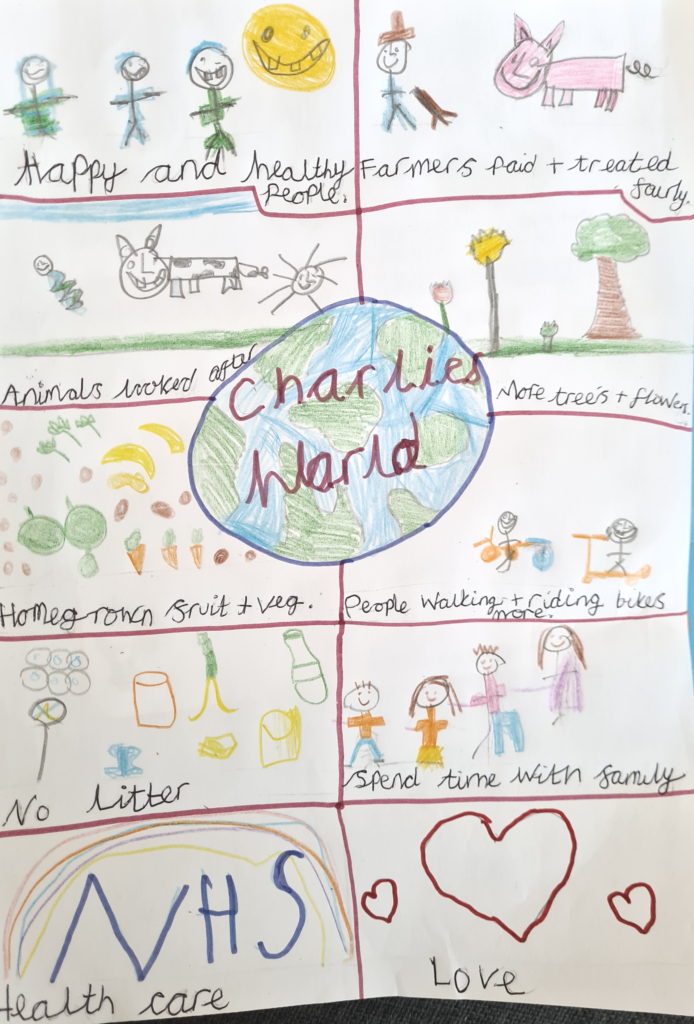 Happy and healthy
people.
Farmers paid + treated
fairly.
Animals looked after
More tree's + flowers.
Charlies
World
Homegrown fruit + veg.
People walking + riding bikes
more.
No litter
Spend time with family
NHS
Health care
Love